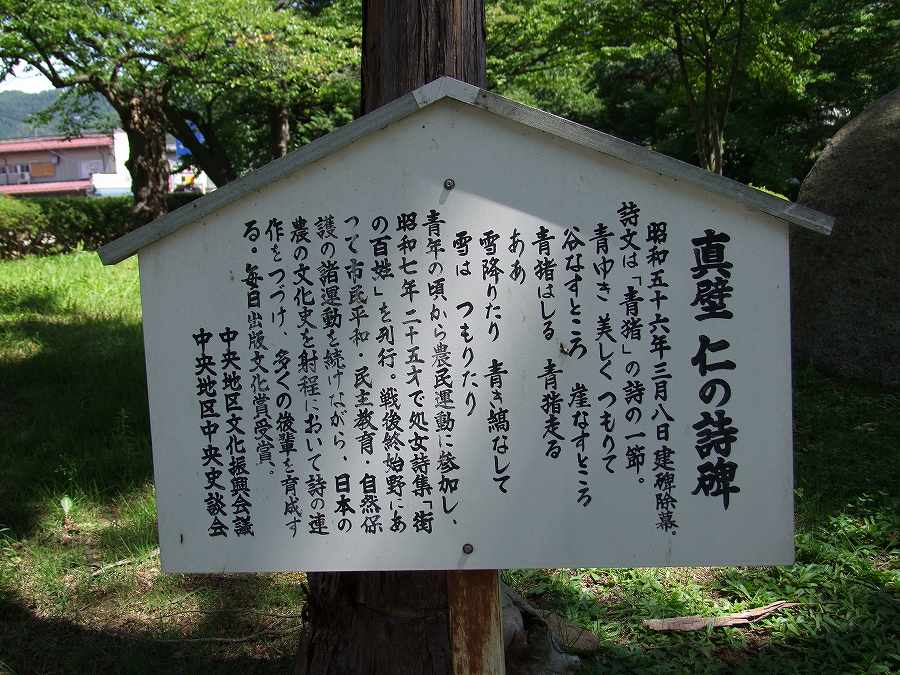 真壁 仁の詩碑
昭和五十六年三月八日建碑除幕。
詩文は「青猪」の詩の一節。
青ゆき 美しく つもりて
谷なすところ 崖なすところ
青猪はしる 青猪走る
ああ
雪降りたり 青き縞なして
雪は つもりたり
青年の頃から農民運動に参加し、
昭和七年 二十五才で処女詩集「街
の百姓」を刊行。戦後終始野にあ
って市民平和・民主教育・自然保
護の諸運動を続けながら、日本の
農の文化史を射程において詩の連
作をつづけ、多くの後輩を育成す
る。毎日出版文化賞受賞。
中央地区文化振興会議
中央地区中央史談会